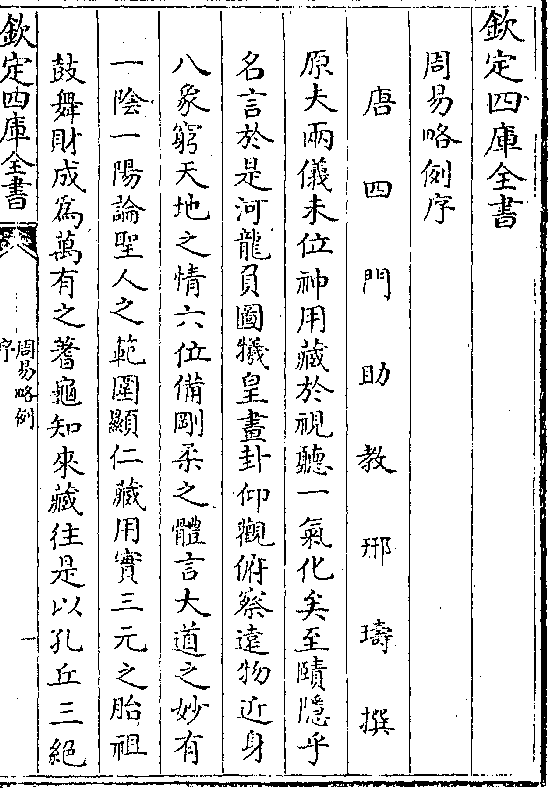 欽定四庫全書
周易略例序
唐四門助教邢璹撰
原夫兩儀未位神用藏於視聽一氣化矣至賾隱乎
名言於是河龍負圖犧皇畫卦仰觀俯察遠物近身
八象窮天地之情六位備剛柔之體言大道之妙有
一陰一陽論聖人之範圍顯仁藏用實三元之胎祖
鼓舞財成為萬有之蓍龜知來藏往是以孔丘三絕
欽定四庫全書
周易略例
序
一